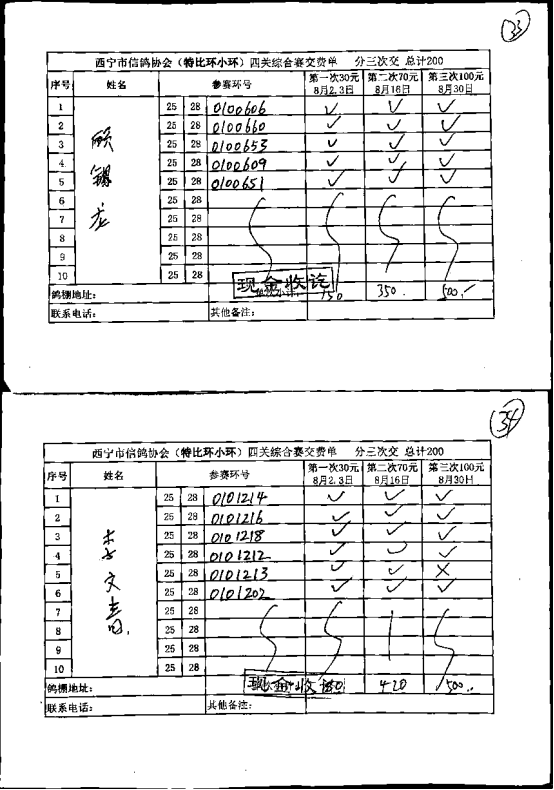 33
西宁市信鸽协会（特比环小环）四关综合赛交费单 分三次交 总计200
序号 姓名 参赛环号 第一次30元 8月2.3日 第二次70元 8月16日 第三次100元 8月30日
1 25 28 0100606 ✓ ✓ ✓
2 25 28 0100660 ✓ ✓ ✓
3 25 28 0100653 ✓ ✓ ✓
4 25 28 0100609 ✓ ✓ ✓
5 25 28 0100651 ✓ ✓ ✓
6 25 28
7 25 28
8 25 28
9 25 28
10 25 28
鸽棚地址： 现金收讫 150 350. 500.
联系电话： 其他备注：
34
西宁市信鸽协会（特比环小环）四关综合赛交费单 分三次交 总计200
序号 姓名 参赛环号 第一次30元 8月2.3日 第二次70元 8月16日 第三次100元 8月30日
1 25 28 0101214 ✓ ✓ ✓
2 25 28 0101216 ✓ ✓ ✓
3 25 28 0101218 ✓ ✓ ✓
4 25 28 0101212 ✓ ✓ ✓
5 25 28 0101213 ✓ ✓ ✗
6 25 28 0101202 ✓ ✓ ✓
7 25 28
8 25 28
9 25 28
10 25 28
鸽棚地址： 现金收 420 500.
联系电话： 其他备注：